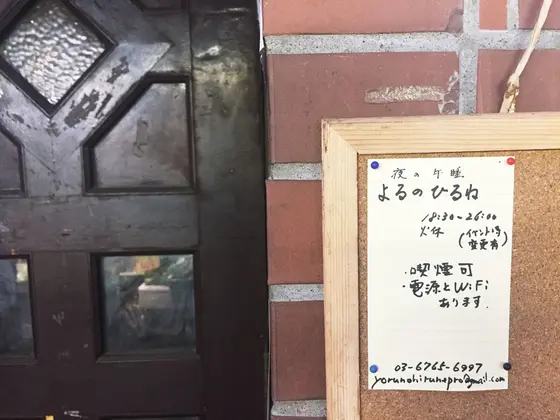 夜の午睡
よるのひるね
18:30~26:00
火休
(イベント等
変更有)
・喫煙可
・電源とWiFi
あります.
03-6765-6997
yorunohirunepro@gmail.com